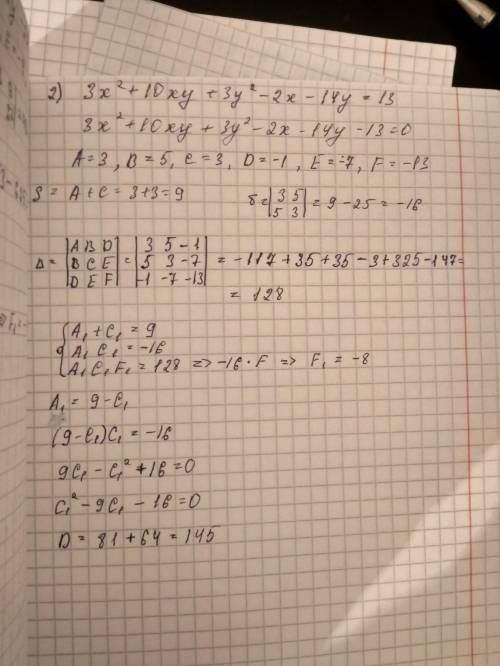 2) 3x² + 10xy + 3y² - 2x - 14y = 13
3x² + 10xy + 3y² - 2x - 14y - 13 = 0
A = 3, B = 5, C = 3, D = -1, E = -7, F = -13
S = A + C = 3 + 3 = 9
δ = |3 5; 5 3| = 9 - 25 = -16
Δ = |A B D; B C E; D E F| = |3 5 -1; 5 3 -7; -1 -7 -13| = -117 + 35 + 35 - 3 + 325 - 147 =
= 128
{A₁ + C₁ = 9
A₁ C₁ = -16
A₁ C₁ F₁ = 128 => -16 · F => F₁ = -8
A₁ = 9 - C₁
(9 - C₁)C₁ = -16
9C₁ - C₁² + 16 = 0
C₁² - 9C₁ - 16 = 0
D = 81 + 64 = 145